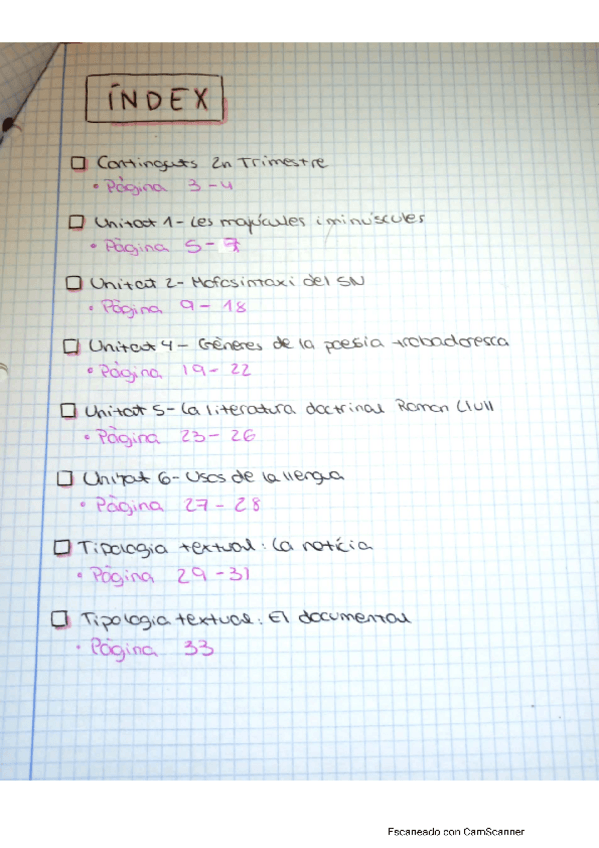 ÍNDEX
Continguts 2n Trimestre
• Pàgina 3-4
Unitat 1- Les majúscules i minúscules
• Pàgina 5-7
Unitat 2- Mofosintaxi del SN
• Pàgina 9-18
Unitat 4- Gèneres de la poesia trobadoresca
• Pàgina 19-22
Unitat 5- La literatura doctrinal Ramon Llull
• Pàgina 23-26
Unitat 6- Usos de la llengua
• Pàgina 27-28
Tipologia textual: La notícia
• Pàgina 29-31
Tipologia textual: El documental
• Pàgina 33
Escaneado con CamScanner